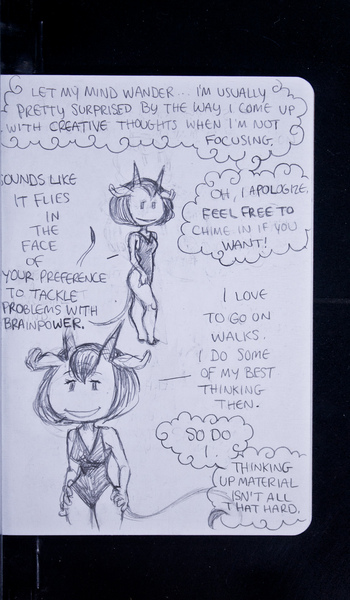 LET MY MIND WANDER... I'M USUALLY
PRETTY SURPRISED BY THE WAY I COME UP
WITH CREATIVE THOUGHTS WHEN I'M NOT
FOCUSING.
SOUNDS LIKE
IT FLIES
IN
THE
FACE
OF
YOUR PREFERENCE
TO TACKLE
PROBLEMS WITH
BRAINPOWER.
OH, I APOLOGIZE.
FEEL FREE TO
CHIME IN IF YOU
WANT!
I LOVE
TO GO ON
WALKS.
I DO SOME
OF MY BEST
THINKING
THEN.
SO DO
I.
THINKING
UP MATERIAL
ISN'T ALL
THAT HARD.